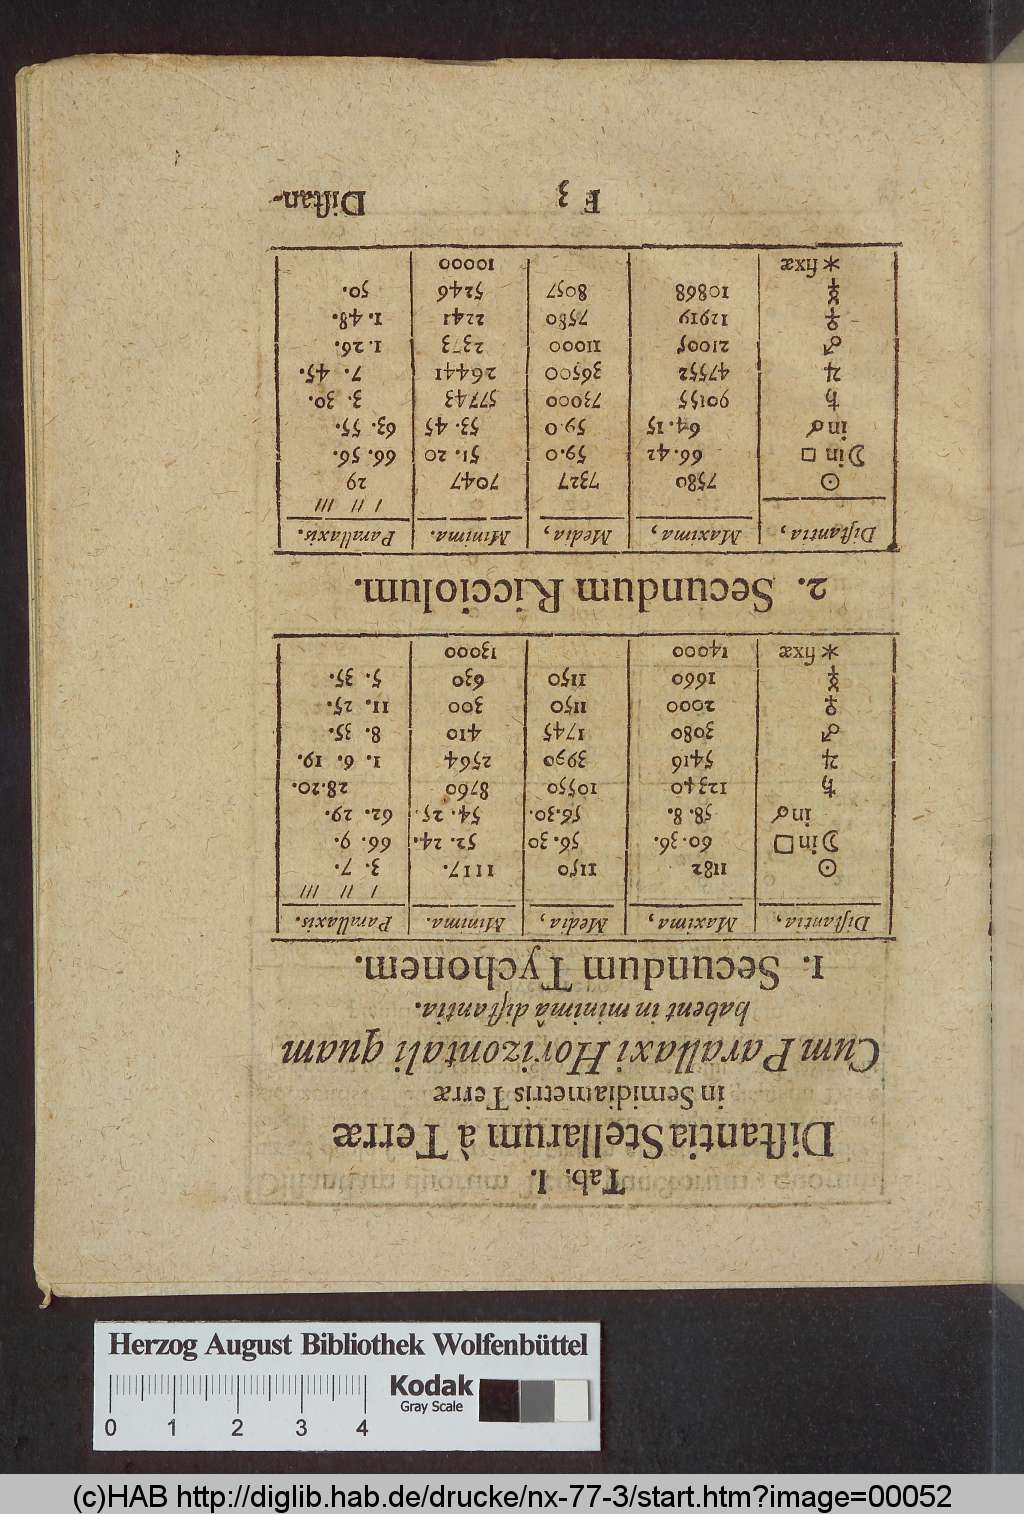 Tab. I.
Diſtantia Stellarum à Terræ
in Semidiametris Terræ
Cum Parallaxi Horizontali quam
habent in minimâ diſtantia.
1. Secundum Tychonem.
Diſtantia, Maxima, Media, Minima. Parallaxis.
I II III
☉ 1182 1150 1117. 3. 7.
☽ in □ 60. 36. 56. 30 52. 24. 66. 9.
in ☌ 58. 8. 56.30. 54. 25. 62. 29.
♄ 12340 10550 8760 28.20.
♃ 5416 3990 2564 1. 6. 19.
♂ 3080 1745 410 8. 35.
♀ 2000 1150 300 11. 25.
☿ 1660 1150 630 5. 35.
* fixæ 14000 13000
2. Secundum Ricciolum.
Diſtantia, Maxima, Media, Minima. Parallaxis.
I II III
☉ 7580 7327 7047 29
☽ in □ 66. 42 59.0. 51. 20 66. 56.
in ☌ 64. 15 59.0 53. 45 63. 55.
♄ 90155 73000 57743 3. 30.
♃ 47552 36500 26441 7. 45.
♂ 21005 11000 2373 1. 26.
♀ 12919 7580 2241 1. 48.
☿ 10868 8057 5246 50.
* fixæ 10000
F 3 Diſtan-
Herzog August Bibliothek Wolfenbüttel
Kodak
Gray Scale
0 1 2 3 4
(c)HAB http://diglib.hab.de/drucke/nx-77-3/start.htm?image=00052